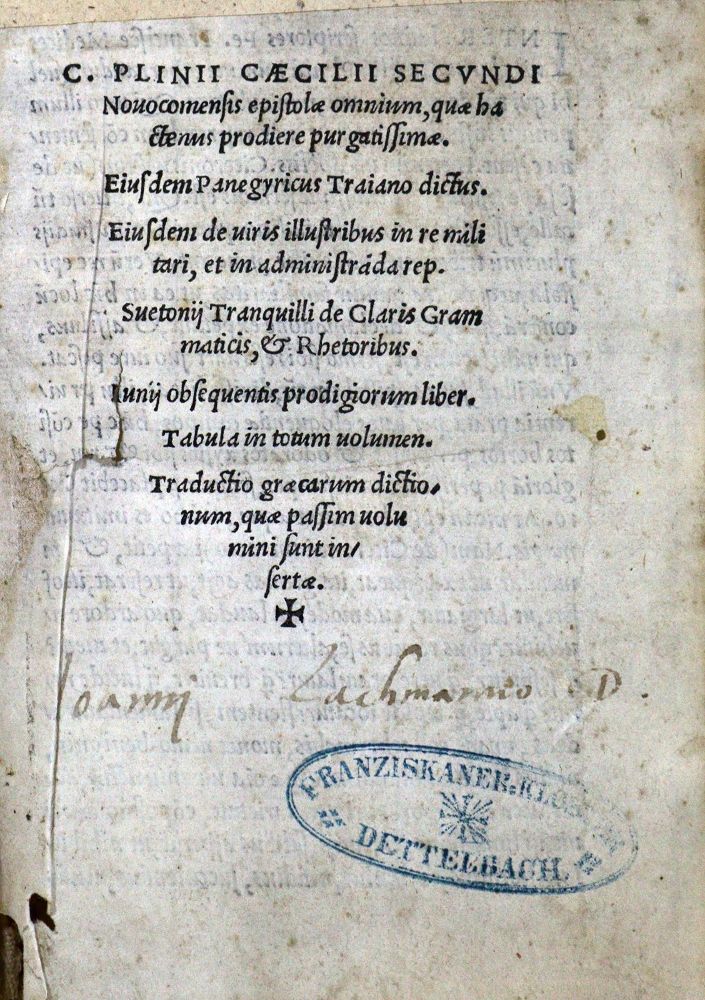 C. PLINII CÆCILII SECVNDI
Nouocomensis epistolæ omnium, quæ ha
ctenus prodiere purgatissimæ.
Eiusdem Panegyricus Traiano dictus.
Eiusdem de uiris illustribus in re mili
tari, et in administrāda rep.
Suetonij Tranquilli de Claris Gram
maticis, & Rhetoribus.
Iunij obsequentis prodigiorum liber.
Tabula in totum uolumen.
Traductio græcarum dictio,
num, quæ passim uolu
mini sunt in/
sertæ.
Ioannj Lachmannio D.
FRANZISKANER-KLOSTER
DETTELBACH.